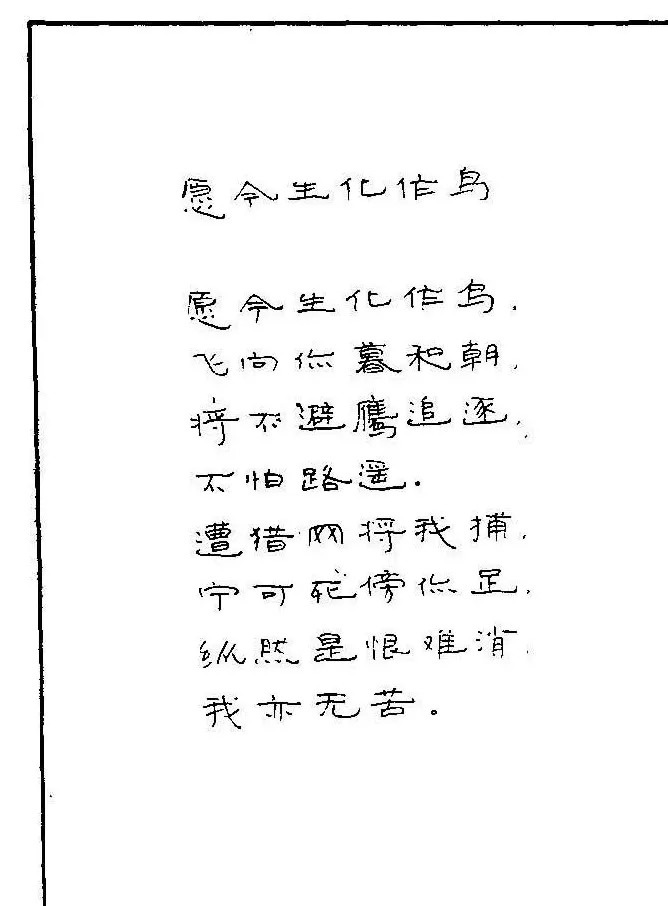 愿今生化作鸟
愿今生化作鸟,
飞向你暮和朝,
将不避鹰追逐,
不怕路遥.
遭猎网将我捕,
宁可死傍你足,
纵然是恨难消,
我亦无苦。